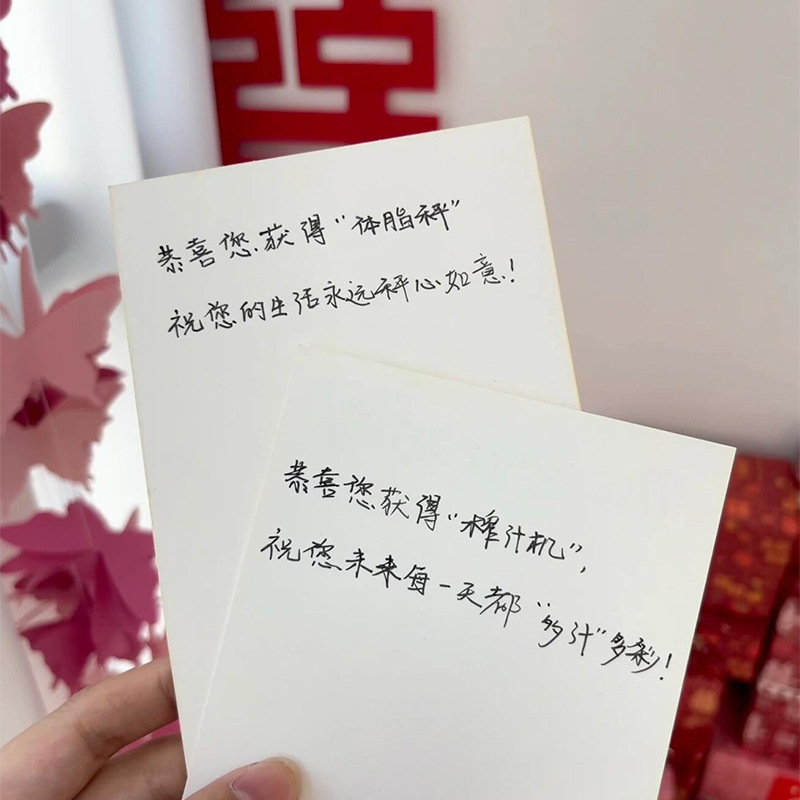 恭喜您获得“体脂秤”
祝您的生活永远秤心如意!
恭喜您获得“榨汁机”,
祝您未来每一天都“多汁”多彩!